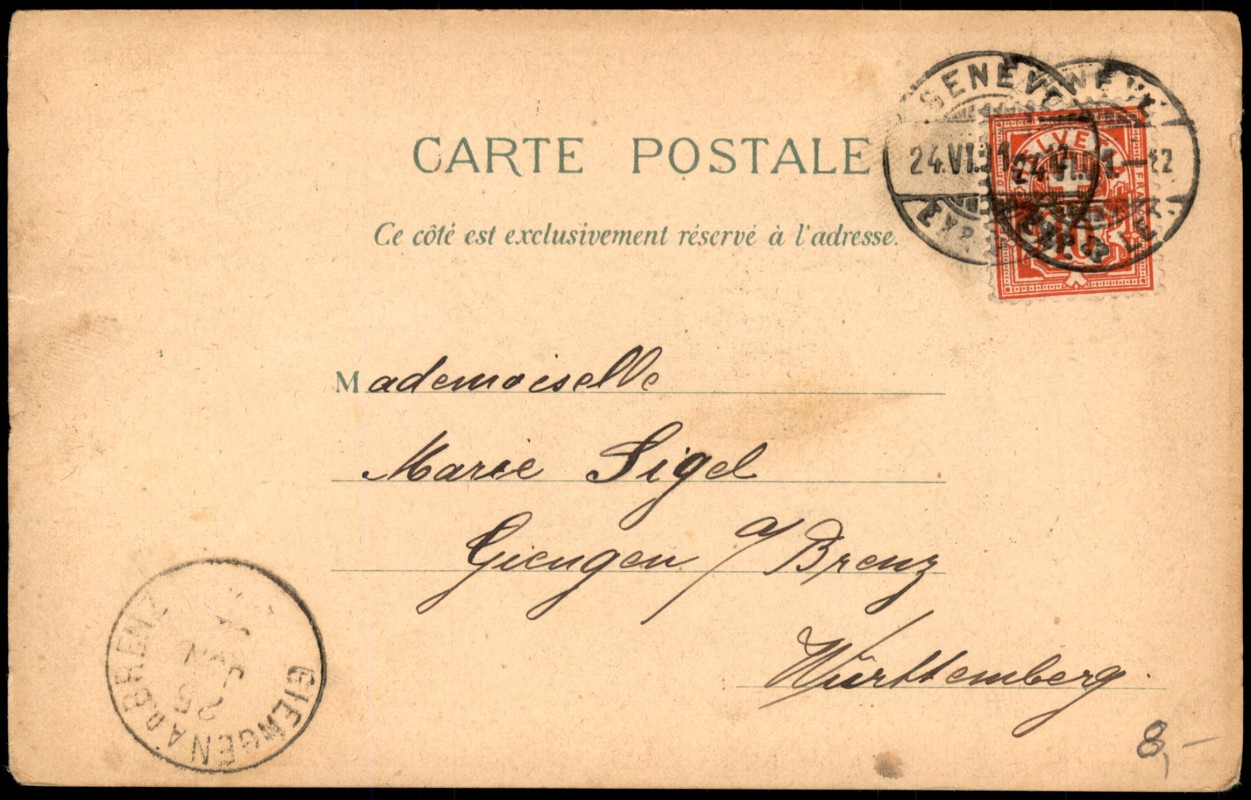 CARTE POSTALE
Ce côté est exclusivement réservé à l'adresse.
GENÈVE
24.VI.
GENÈVE
24.VI.01.—12
HELVETIA
FRANCO
10
Mademoiselle
Marie Sigel
Giengen a/Brenz
Württemberg.
GIENGEN A.D.BRENZ
25
JUN
8,-